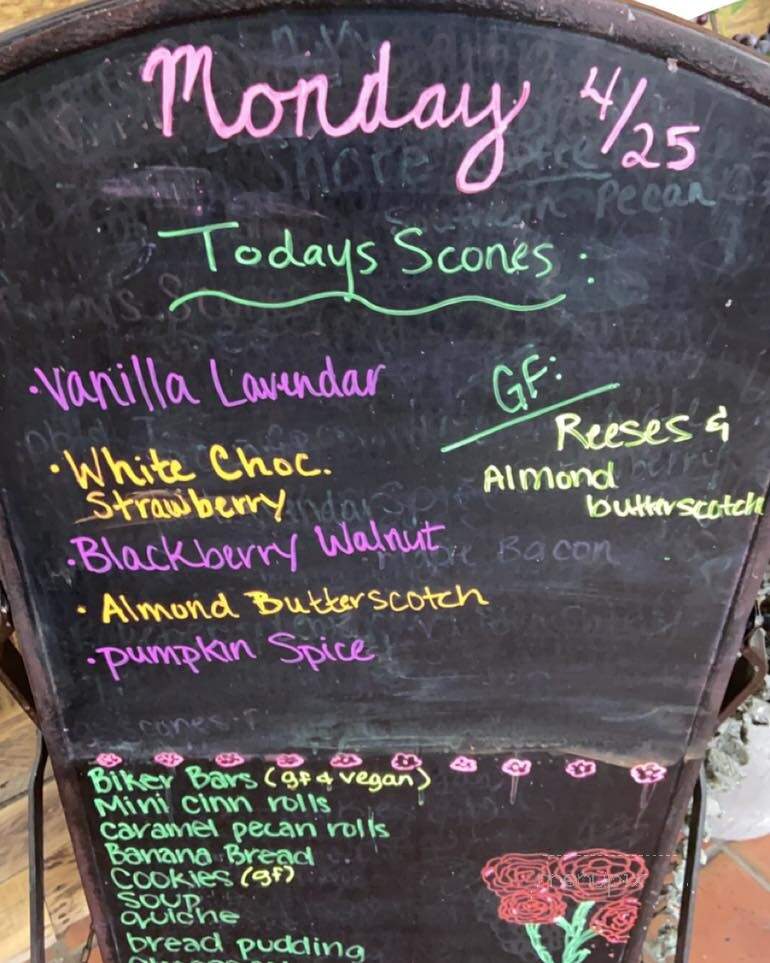 Monday 4/25
Todays Scones:
·Vanilla Lavendar
GF:
Reeses &
Almond
butterscotch
·White Choc.
Strawberry
·Blackberry Walnut
· Almond Butterscotch
·pumpkin Spice
Biker Bars (gf & vegan)
Mini cinn rolls
caramel pecan rolls
Banana Bread
Cookies (gf)
soup
quiche
bread pudding
menupix